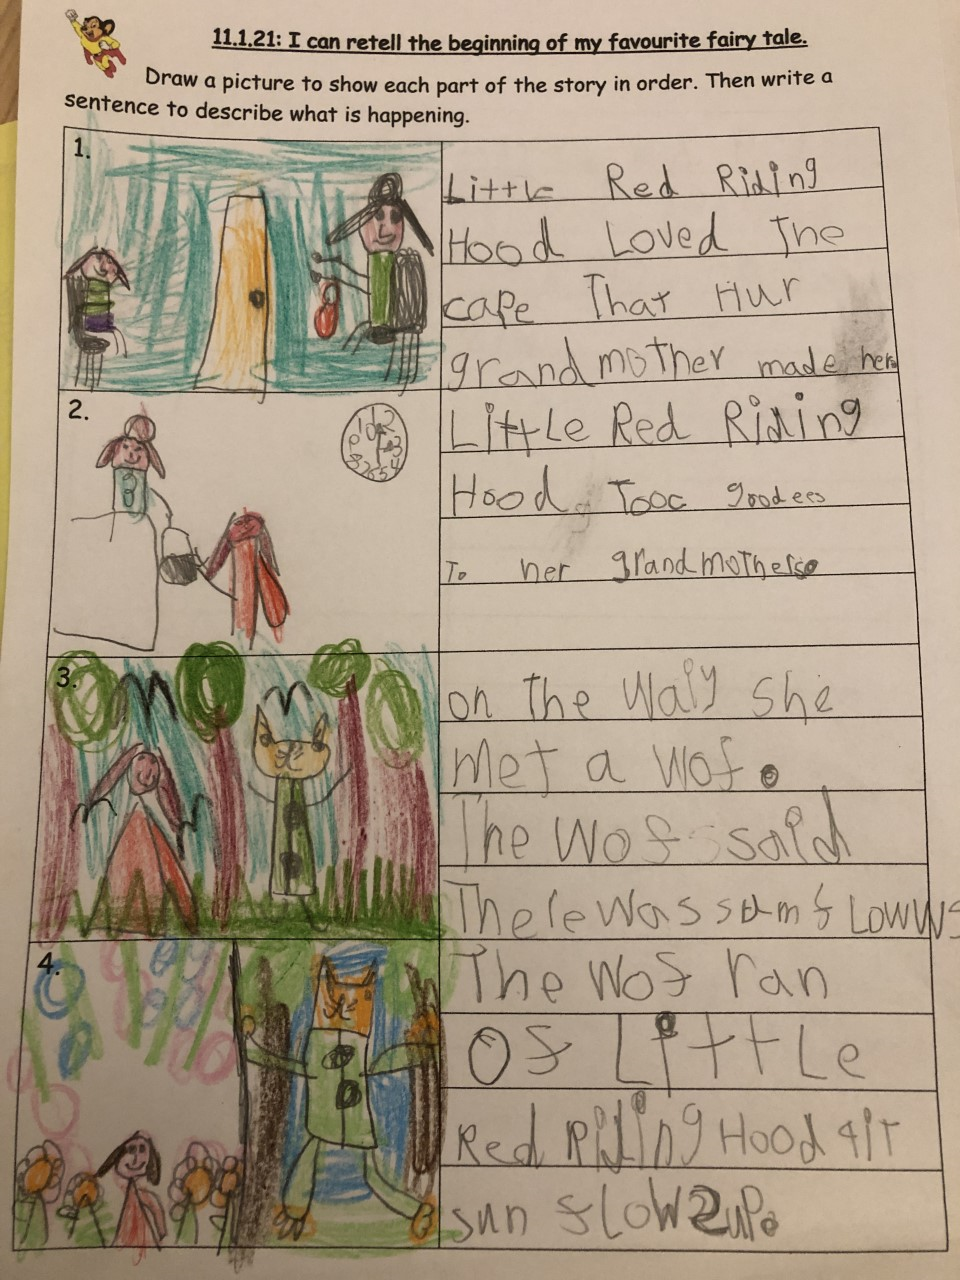 11.1.21: I can retell the beginning of my favourite fairy tale.
Draw a picture to show each part of the story in order. Then write a
sentence to describe what is happening.
1.
Little Red Riding
Hood Loved The
cape That Hur
grandmother made her
2.
Little Red Riding
Hood Tooc goodees
To her grandmothers
3.
on the waiy she
met a wof.
The wof said
There was sum flowws
4.
The wof ran
Of Little
Red Riding Hood
sun flow